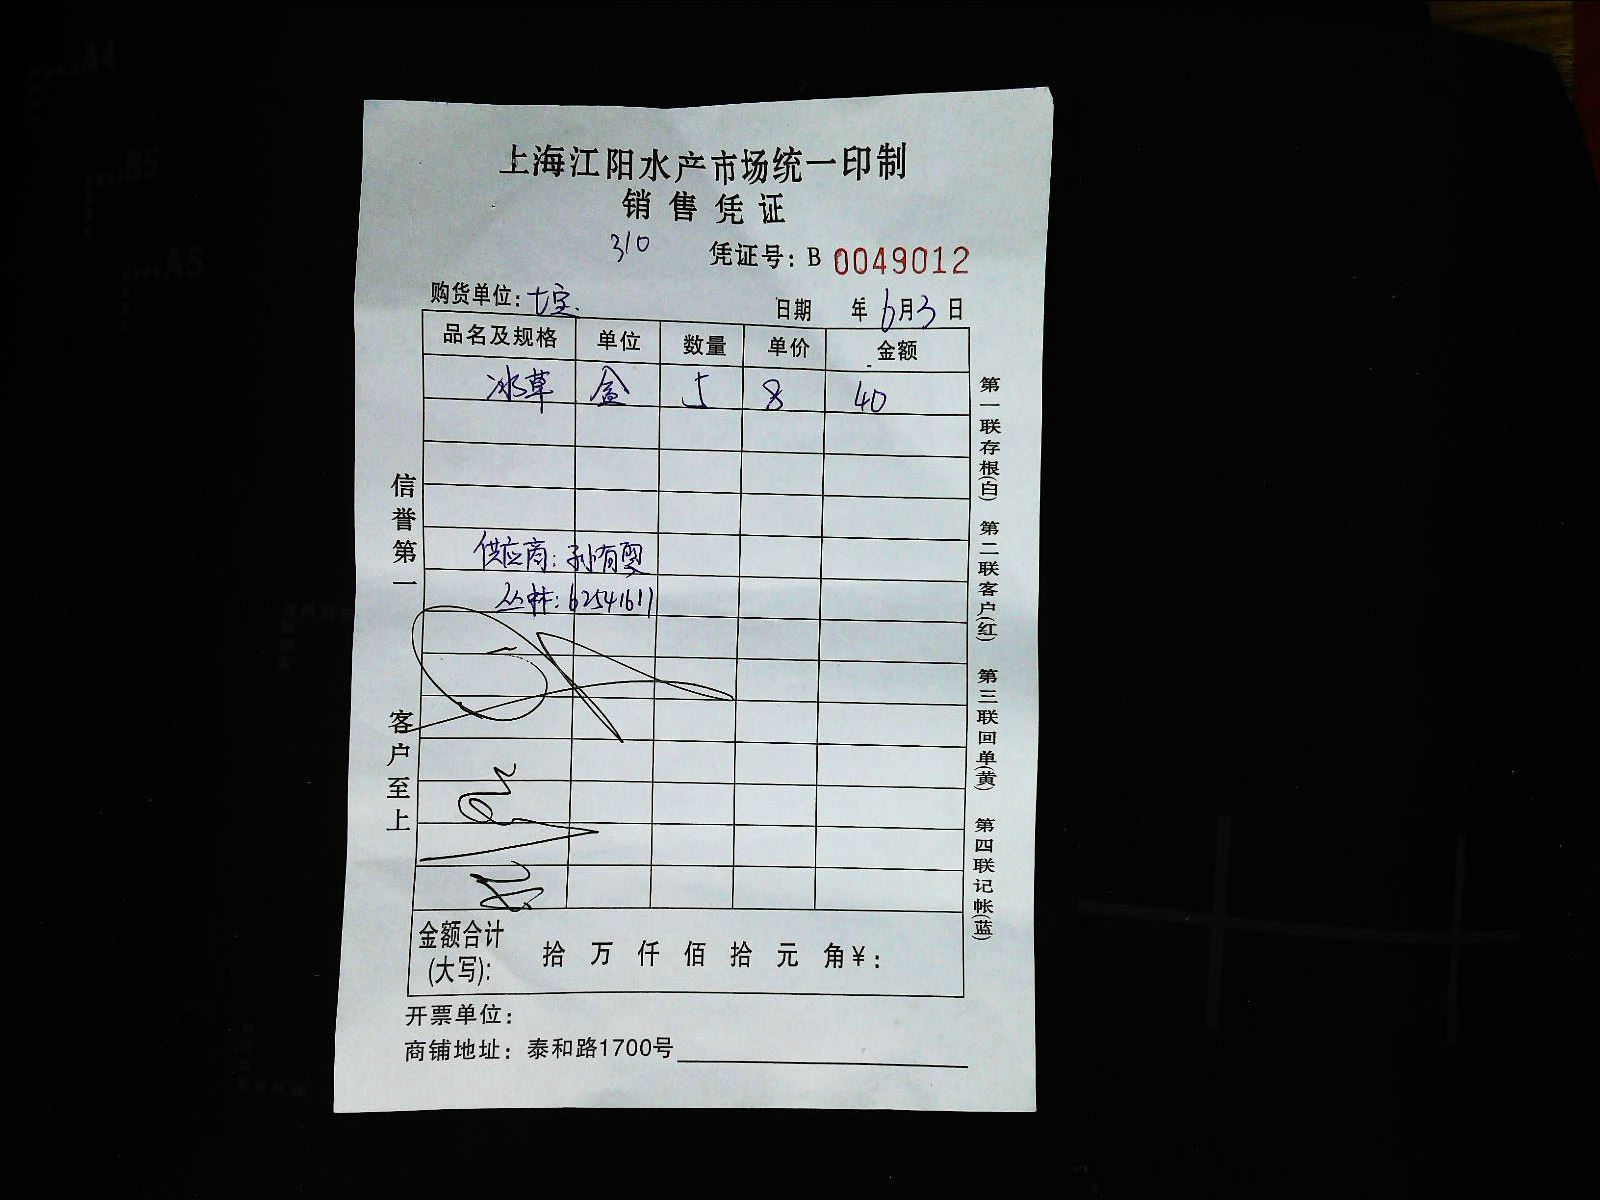 上海江阳水产市场统一印制
销售凭证
310
凭证号: B 0049012
购货单位: 七宝.
日期 年 6月3日
品名及规格 单位 数量 单价 金额
冰草 盒 5 8 40
供应商: 孙有
丛林: 62541611
信誉第一
客户至上
第一联存根(白) 第二联客户(红) 第三联回单(黄) 第四联记帐(蓝)
金额合计
(大写): 拾 万 仟 佰 拾 元 角 ¥:
开票单位:
商铺地址: 泰和路1700号
A4
B5
A5